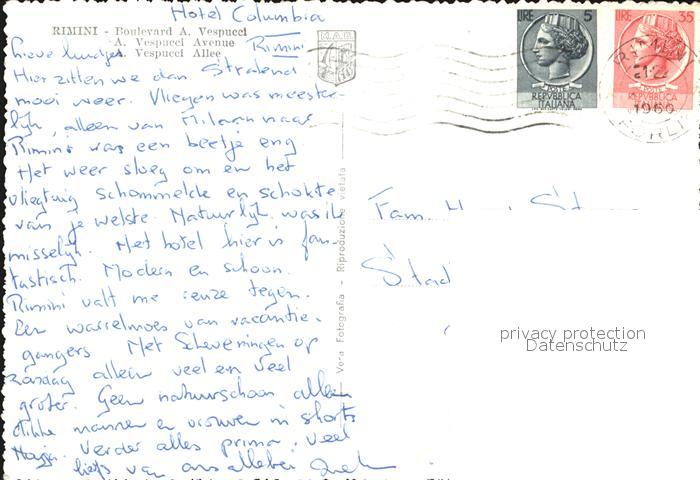 Hotel Columbia
RIMINI - Boulevard A. Vespucci
A. Vespucci Avenue
A. Vespucci Allee
Rimini
lieve luidjes
Hier zitten we dan Stralend
mooi weer. Vliegen was meester-
lijk, alleen van Milaan naar
Rimini was een beetje eng
Het weer sloeg om en het
vliegtuig schommelde en schokte
van je welste. Natuurlijk was ik
misselijk. Het hotel hier is fan-
tastisch. Modern en schoon.
Rimini valt me reuze tegen.
Een warrelmoes van vacantie-
gangers Het Scheveningen op
zondag alleen veel en veel
groter. Geen natuurschoon alleen
dikke mannen en vrouwen in shorts
Verder alles prima. Veel
liefs van ons allebei
M.A.B.
Vera Fotografia - Riproduzione vietata
LIRE 5
POSTE
REPVBBLICA
ITALIANA
LIRE 35
POSTE
REPVBBLICA
1960
FORLI
Fam. H S
Stad
privacy protection
Datenschutz